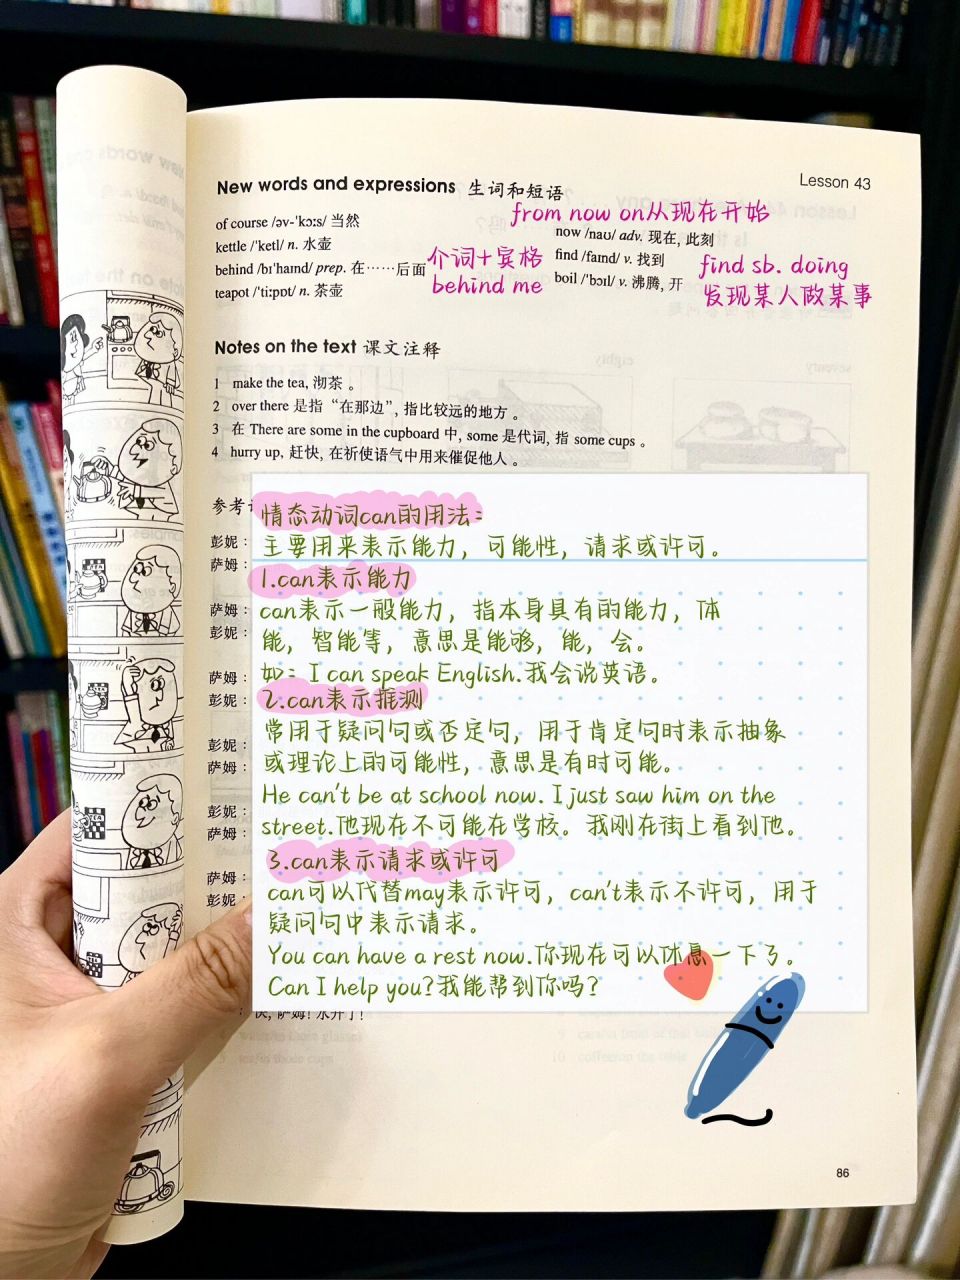 Lesson 43
New words and expressions 生词和短语
from now on从现在开始
of course /əv-'kɔːs/ 当然
kettle /'ketl/ n. 水壶
behind /bɪ'haɪnd/ prep. 在……后面
teapot /'tiːpɒt/ n. 茶壶
介词+宾格
behind me
now /naʊ/ adv. 现在, 此刻
find /faɪnd/ v. 找到
boil /'bɔɪl/ v. 沸腾, 开
find sb. doing
发现某人做某事
Notes on the text 课文注释
1 make the tea, 沏茶 。
2 over there 是指 “在那边”, 指比较远的地方 。
3 在 There are some in the cupboard 中, some 是代词, 指 some cups 。
4 hurry up, 赶快, 在祈使语气中用来催促他人 。
参考
彭妮：
萨姆：
萨姆：
彭妮：
萨姆：
彭妮：
彭妮：
萨姆：
彭妮：
萨姆：
萨姆：
彭妮：
情态动词can的用法：
主要用来表示能力，可能性，请求或许可。
1.can表示能力
can表示一般能力，指本身具有的能力，体
能，智能等，意思是能够，能，会。
如：I can speak English.我会说英语。
2.can表示推测
常用于疑问句或否定句，用于肯定句时表示抽象
或理论上的可能性，意思是有时可能。
He can't be at school now. I just saw him on the
street.他现在不可能在学校。我刚在街上看到他。
3.can表示请求或许可
can可以代替may表示许可，can't表示不许可，用于
疑问句中表示请求。
You can have a rest now.你现在可以休息一下了。
Can I help you?我能帮到你吗？
快, 萨姆! 水开了!
86